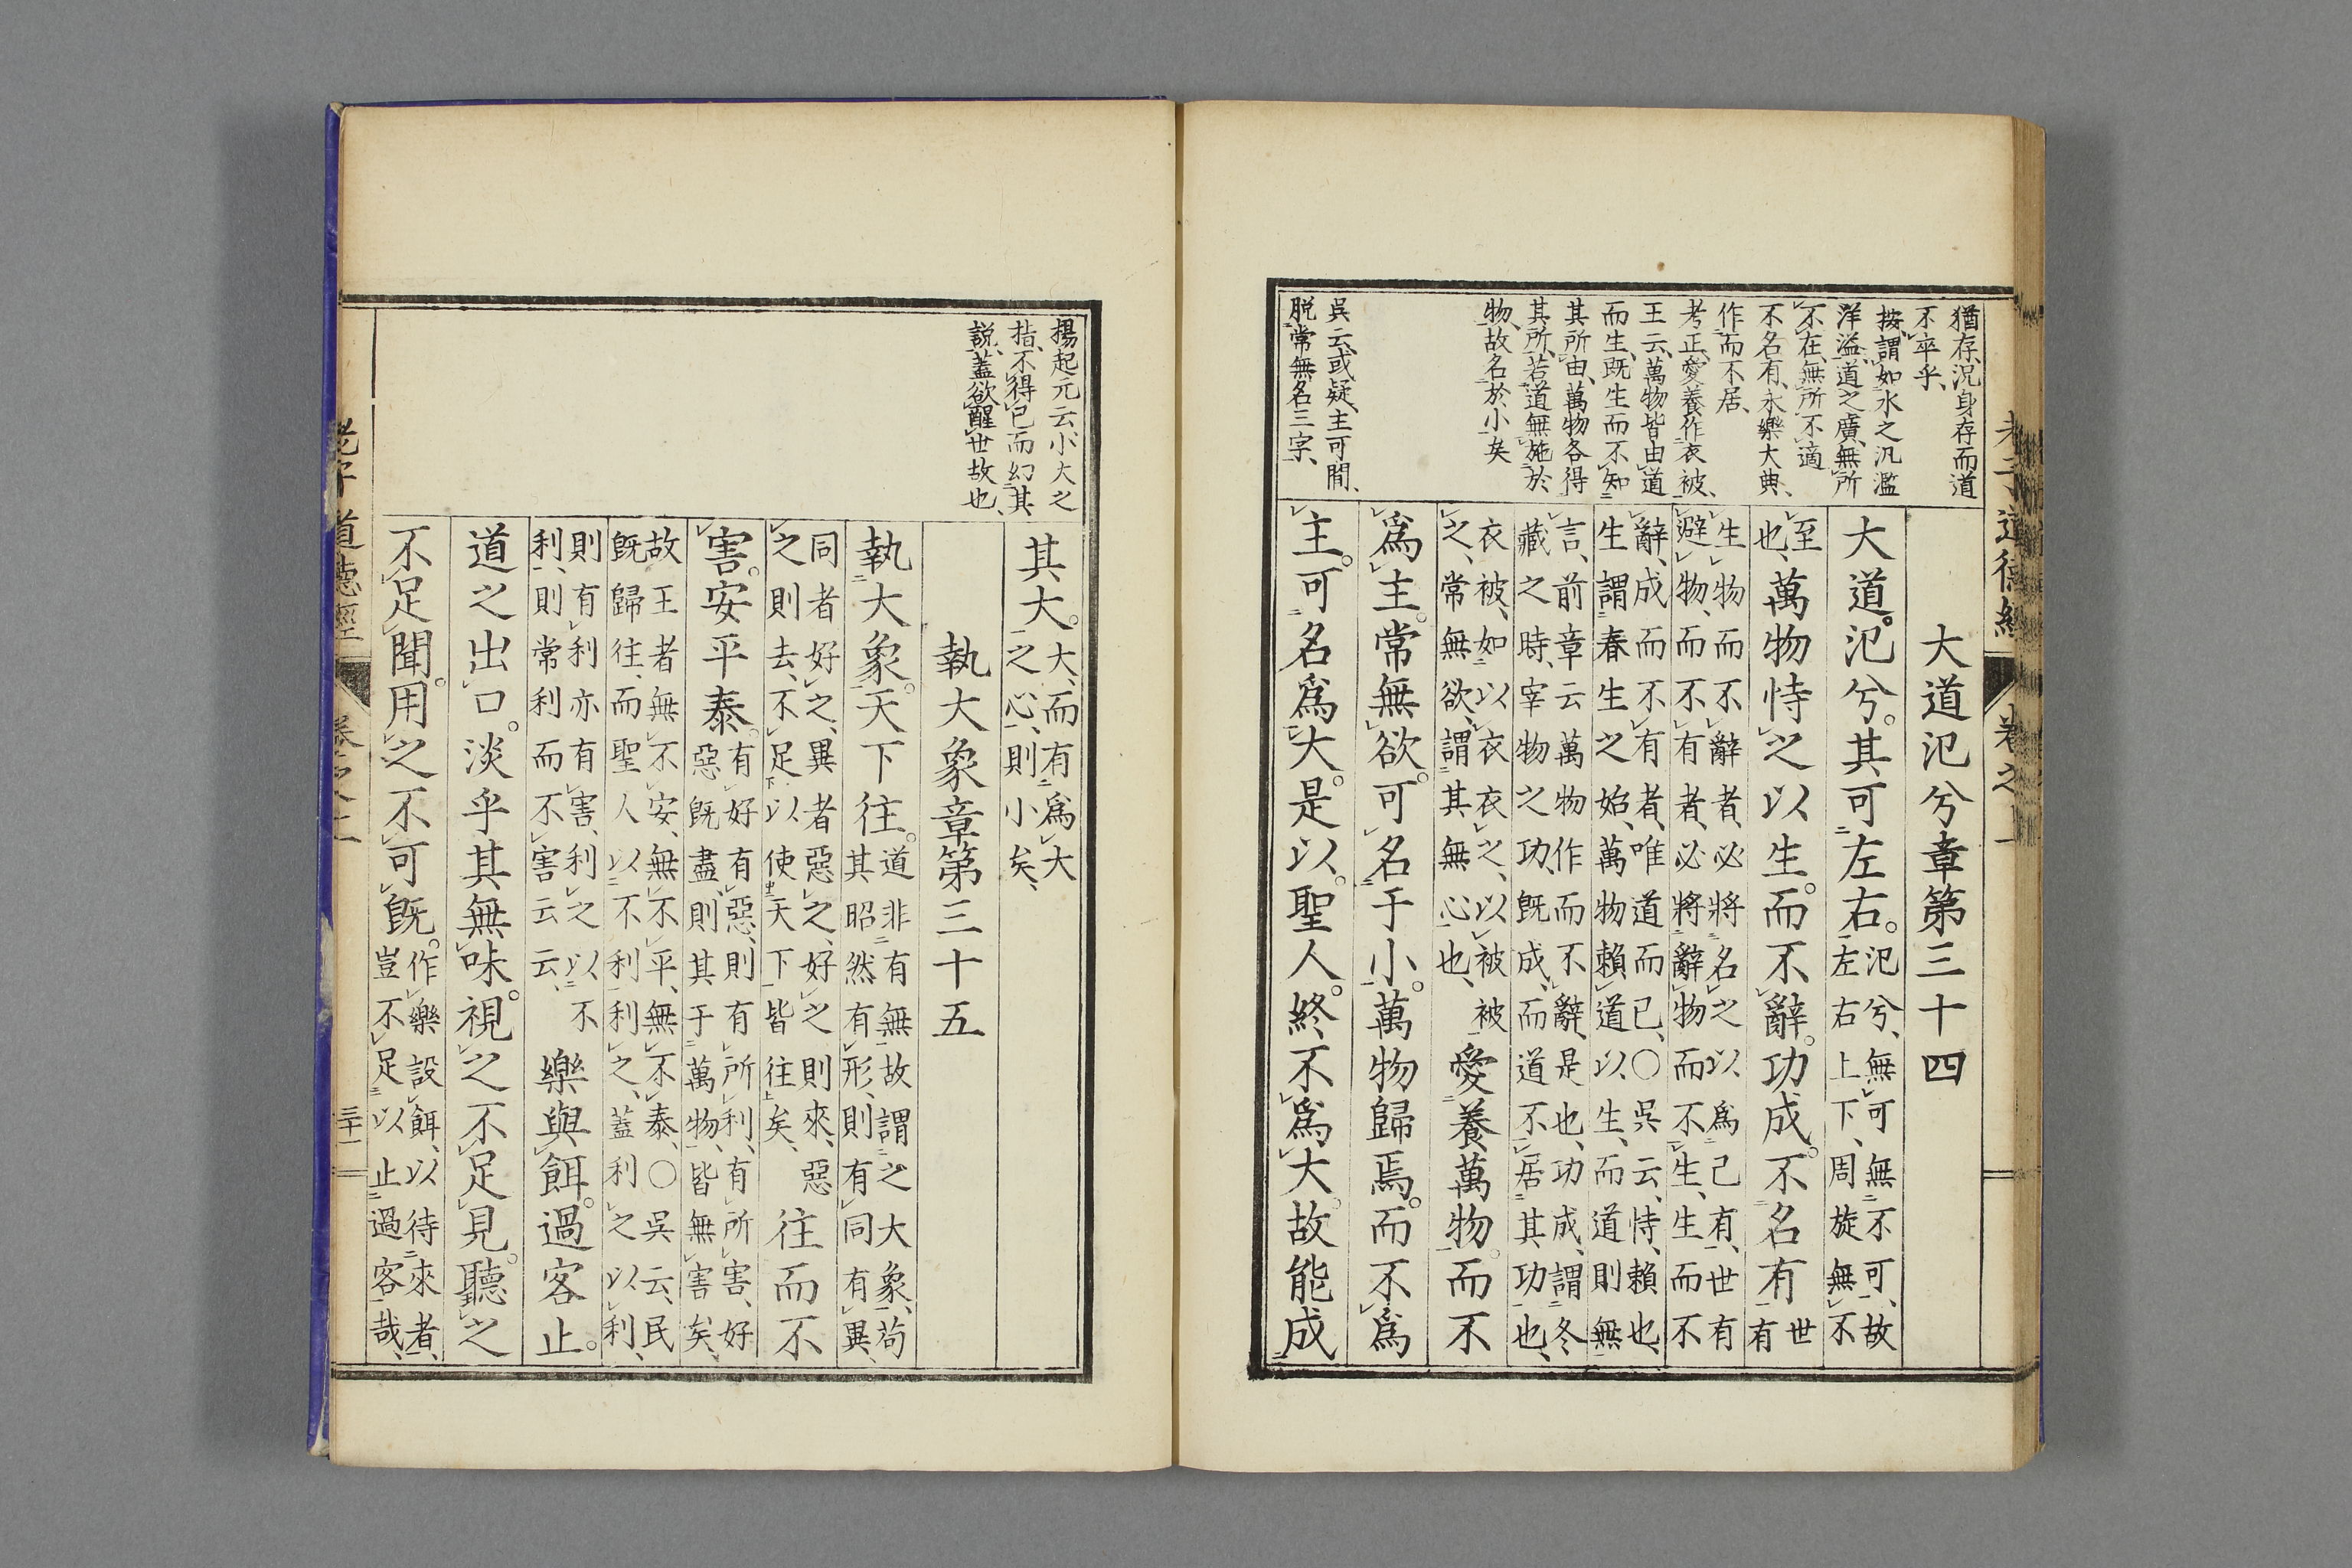 老子道德經 卷之上
猶存、況身存而道
不卒乎、
按、謂如水之汎濫
洋溢、道之廣、無所
不在、無所不適
不名有、永樂大典、
作而不居、
考正、愛養作衣被、
王云、萬物皆由道
而生、既生而不知
其所由、萬物各得
其所、若道無施於
物、故名於小矣
吳云、或疑、主可間、
脱常無名三字、
大道汜兮章第三十四
大道。汜兮。其可左右。
汜兮、無可無不可、故
左右上下、周旋無不
至
也、
萬物恃之以生。而不辭。功成。不名有
世
有
生物而不辭者、必將名之以爲己有、世有
避物、而不有者、必將辭物而不生、生而不
辭、成而不有者、唯道而已、○吳云、恃、賴也、
生謂春生之始、萬物賴道以生、而道則無
言、前章云萬物作而不辭、是也、功成、謂冬
藏之時、宰物之功、既成、而道不居其功也、
衣被、如以衣衣之、以被被
之、常無欲、謂其無心也、
愛養萬物。而不
爲主。常無欲。可名于小。萬物歸焉。而不爲
主。可名爲大。是以聖人。終不爲大。故能成
楊起元云、小大之
指、不得已而幻其
説、蓋欲醒世故也、
其大。
大、而有爲大
之心、則小矣、
執大象章第三十五
執大象。天下往。
道非有無故謂之大象、苟
其昭然有形、則有同有異、
同者好之、異者惡之、好之則來、惡
之則去、不足以使天下皆往矣、
往而不
害。安平泰。
有好有惡、則有所利、有所害、好
惡既盡、則其于萬物、皆無害矣、
故王者無不安、無不平、無不泰、○吳云、民
既歸往、而聖人以不利利之、蓋利之以利、
則有利亦有害、利之以不
利、則常利而不害云云、
樂與餌。過客止。
道之出口。淡乎其無味。視之不足見。聽之
不足聞。用之不可既。
作樂設餌、以待來者、
豈不足以止過客哉、
老子道德經 卷之上 三十一